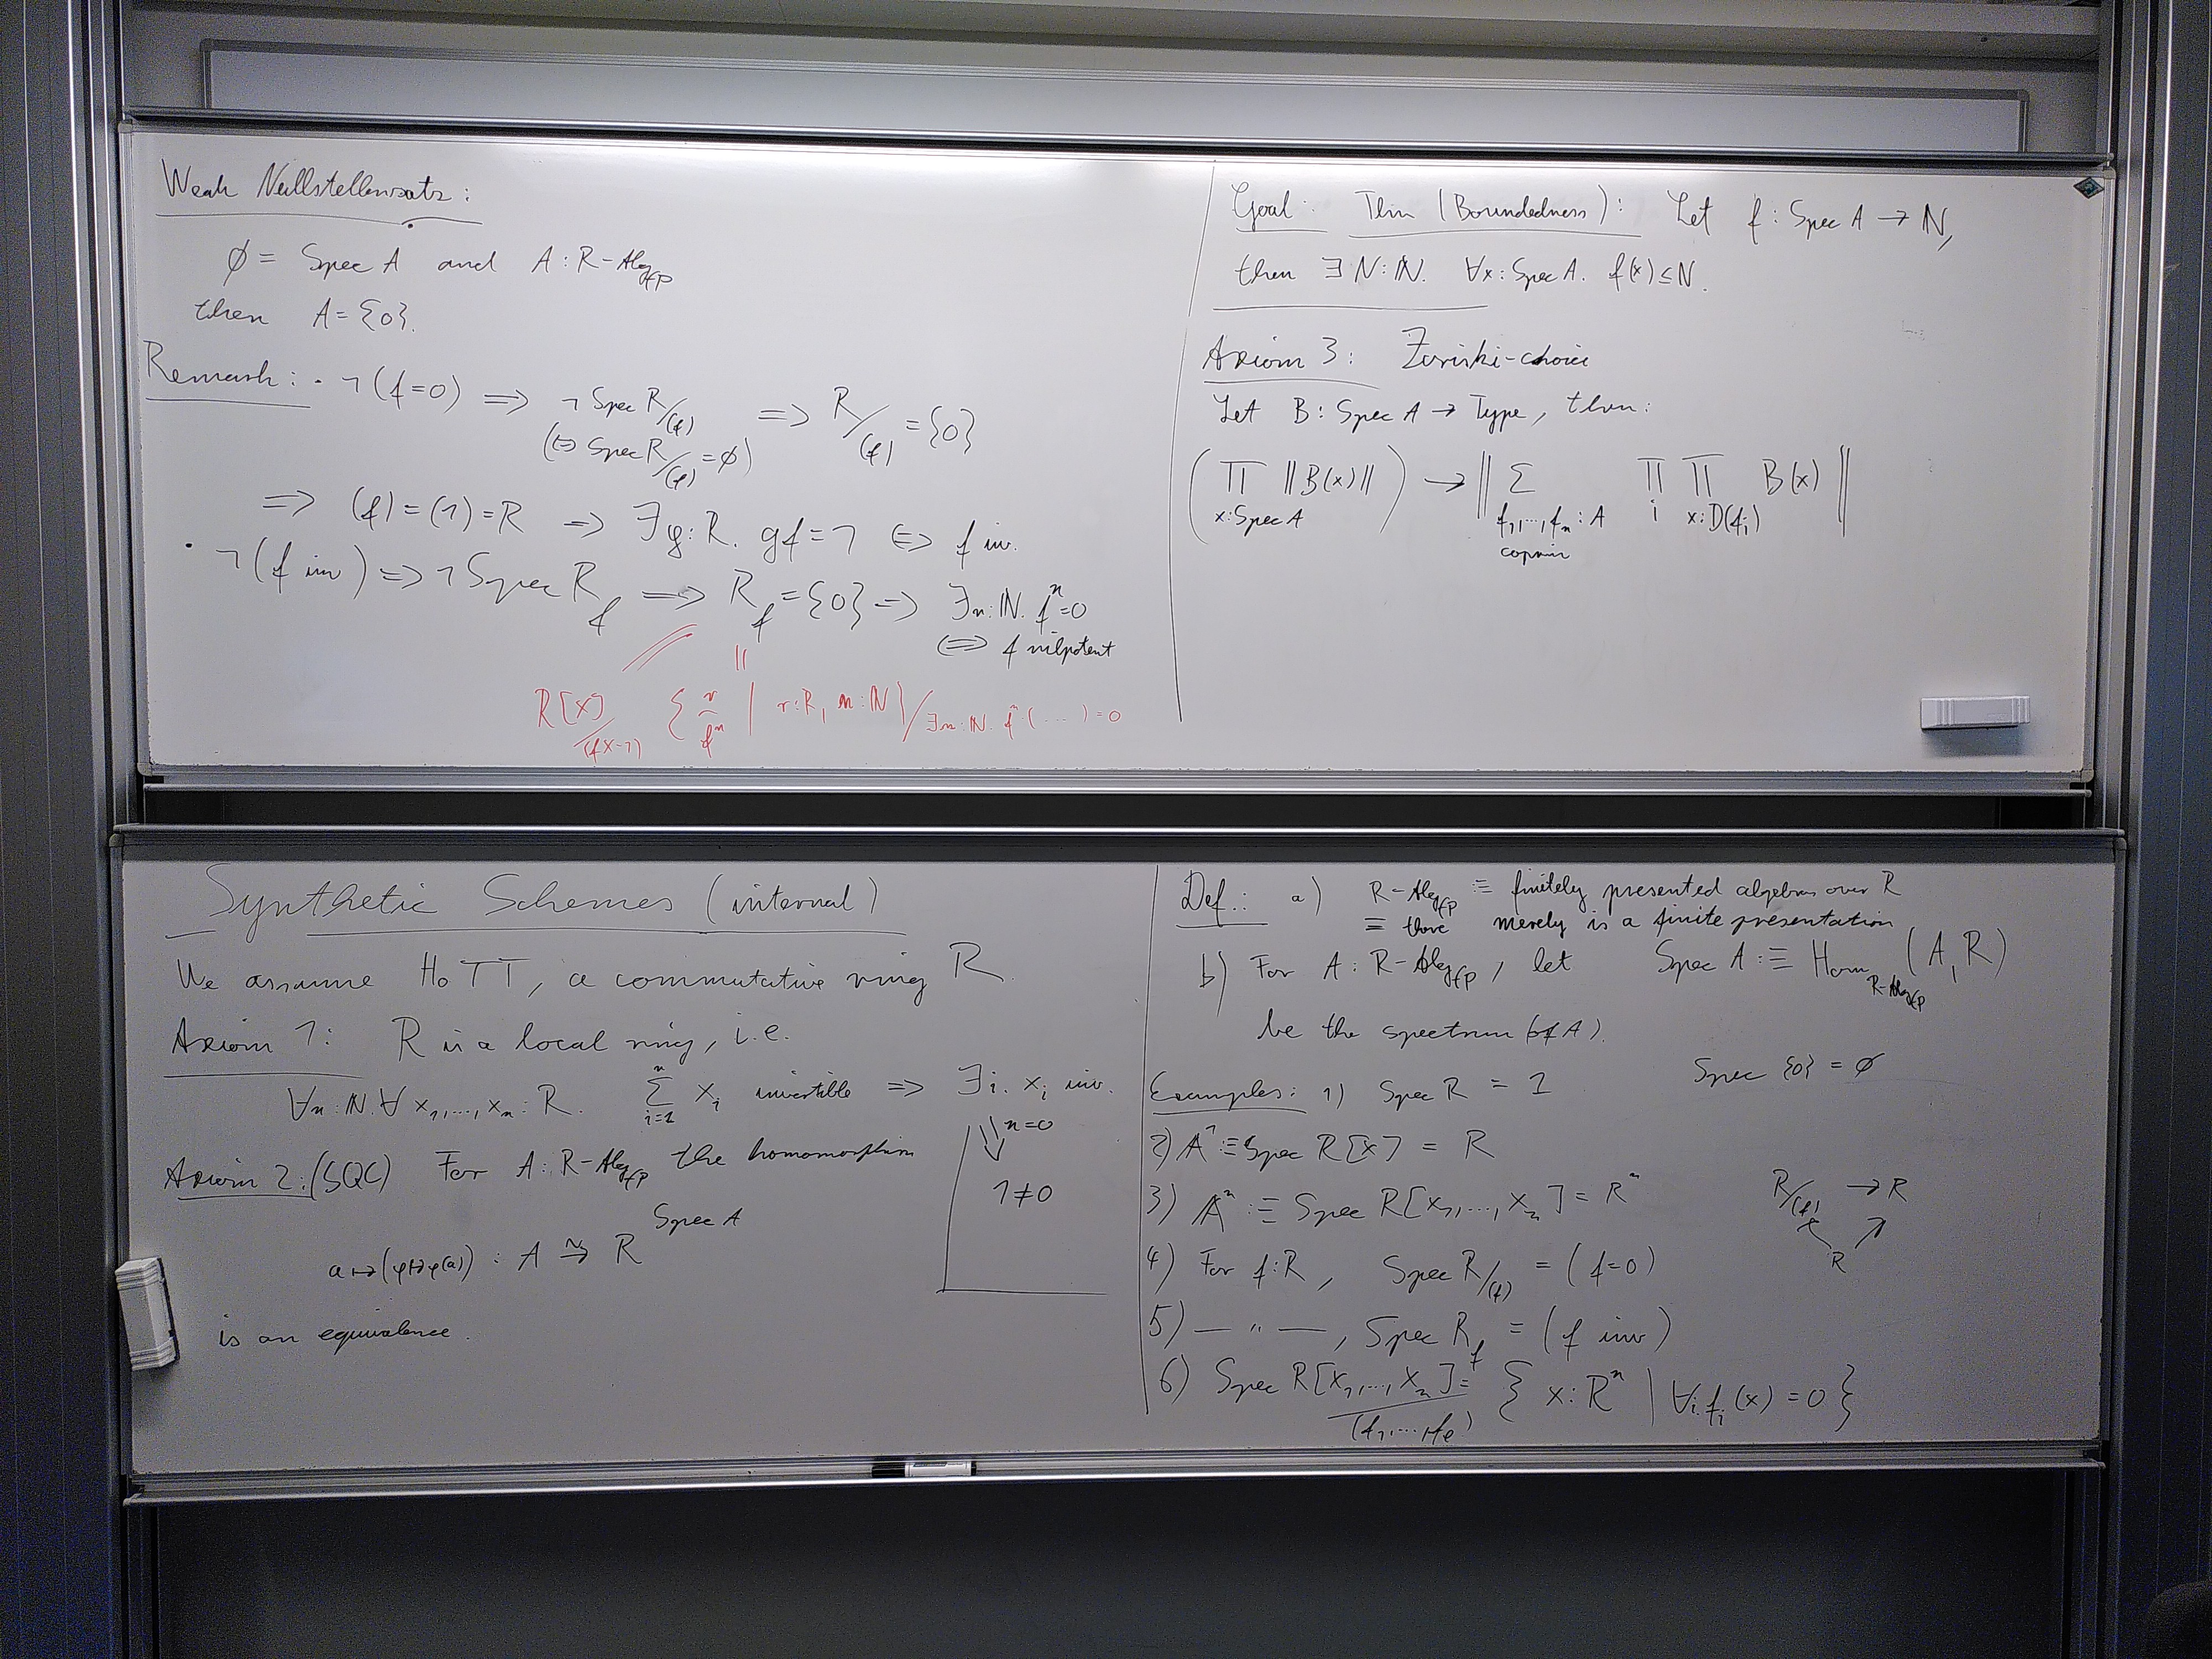 Weak Nullstellensatz:
∅ = Spec A and A : R-Alg_fp
then A = {0}.
Remark: · ¬(f=0) ⟹ ¬ Spec R/(f) ⟹ R/(f) = {0}
(⇔ Spec R/(f) = ∅)
⟹ (f) = (1) = R ⟹ ∃g:R. gf=1 ⇔ f inv.
· ¬(f inv) ⟹ ¬ Spec R_f ⟹ R_f = {0} ⟹ ∃n:ℕ. f^n=0
⇔ f nilpotent
R[X]/(fX-1) {r/f^n | r:R, n:ℕ}/∃n:ℕ. f^n(...)=0
Goal: Thm (Boundedness): Let f : Spec A → ℕ,
then ∃ N:ℕ. ∀x:Spec A. f(x) ≤ N.
Axiom 3: Zariski-choice
Let B : Spec A → Type, then:
(∏_{x:Spec A} ||B(x)||) → ||∑_{f_1,...,f_n:A coprim} ∏_i ∏_{x:D(f_i)} B(x)||
Synthetic Schemes (internal)
We assume HoTT, a commutative ring R.
Axiom 1: R is a local ring, i.e.
∀n:ℕ. ∀ x_1,...,x_n : R. ∑_{i=1}^n x_i invertible ⟹ ∃i. x_i inv.
⇓ n=0
1≠0
Axiom 2: (SQC) For A : R-Alg_fp the homomorphism
a ↦ (φ ↦ φ(a)) : A ⥲ R^{Spec A}
is an equivalence.
Def.: a) R-Alg_fp :≡ finitely presented algebras over R
≡ there merely is a finite presentation
b) For A : R-Alg_fp, let Spec A :≡ Hom_{R-Alg_fp}(A, R)
be the spectrum (of A).
Spec {0} = ∅
Examples: 1) Spec R = 1
2) 𝔸^1 :≡ Spec R[X] = R
3) 𝔸^n :≡ Spec R[X_1,...,X_n] = R^n
R/(f) → R
R
4) For f:R, Spec R/(f) = (f=0)
5) — " —, Spec R_f = (f inv)
6) Spec R[X_1,...,X_n]/(f_1,...,f_l) = {x:R^n | ∀i. f_i(x) = 0}